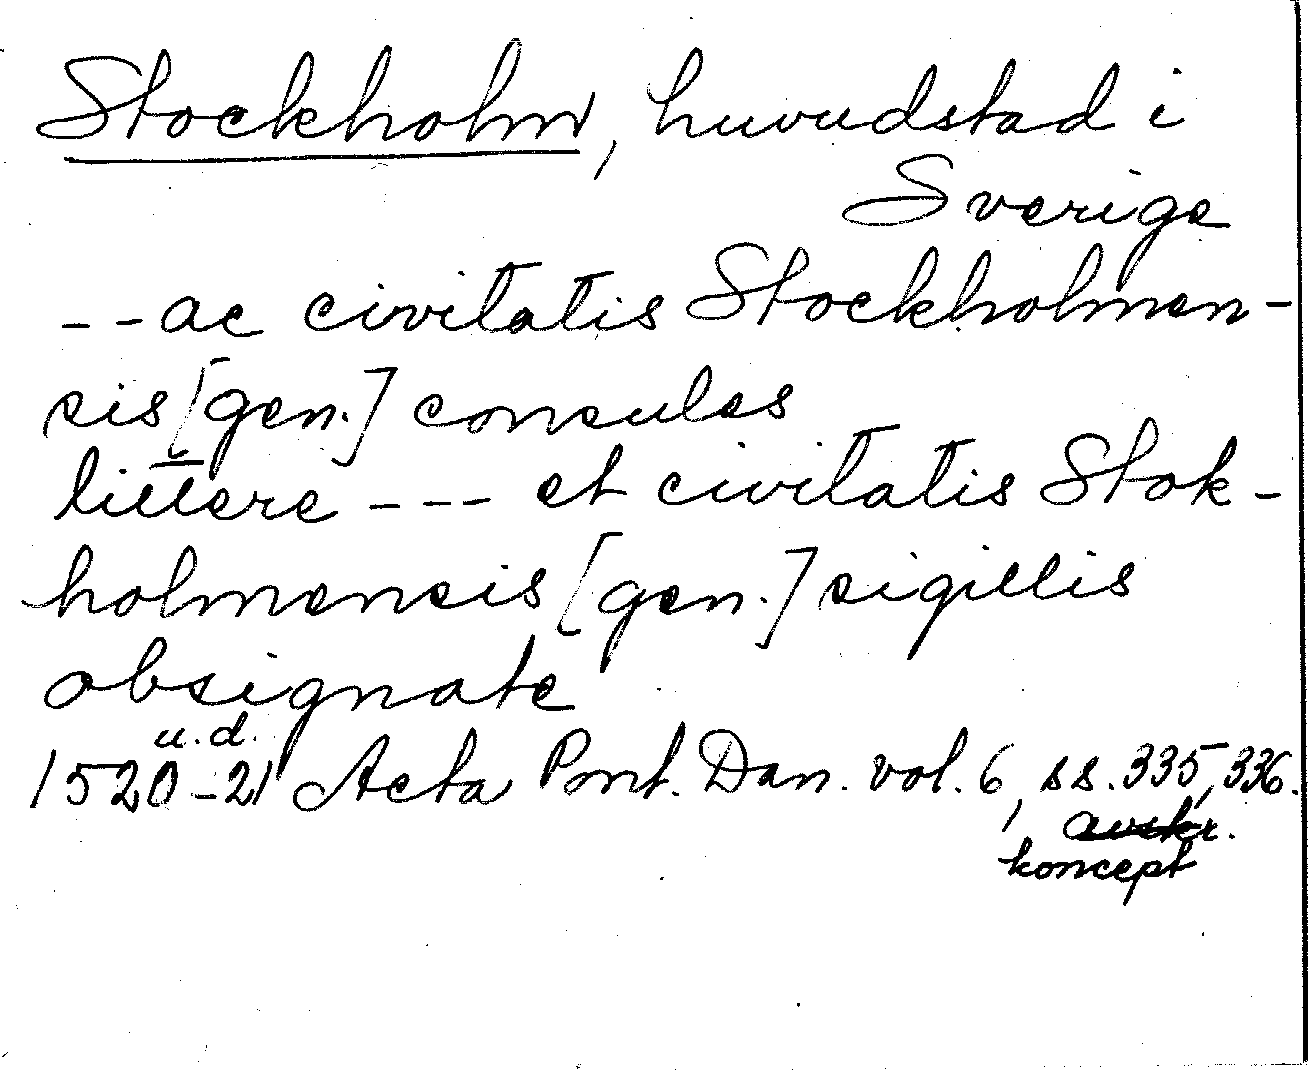 Stockholm, huvudstad i
Sverige
-- ac civitatis Stockholmen-
sis [gen.] consules
littere --- et civitatis Stok-
holmensis [gen.] sigillis
obsignate
u.d.
1520-21 Acta Pont. Dan. vol. 6, ss. 335, 336.
avskr.
koncept